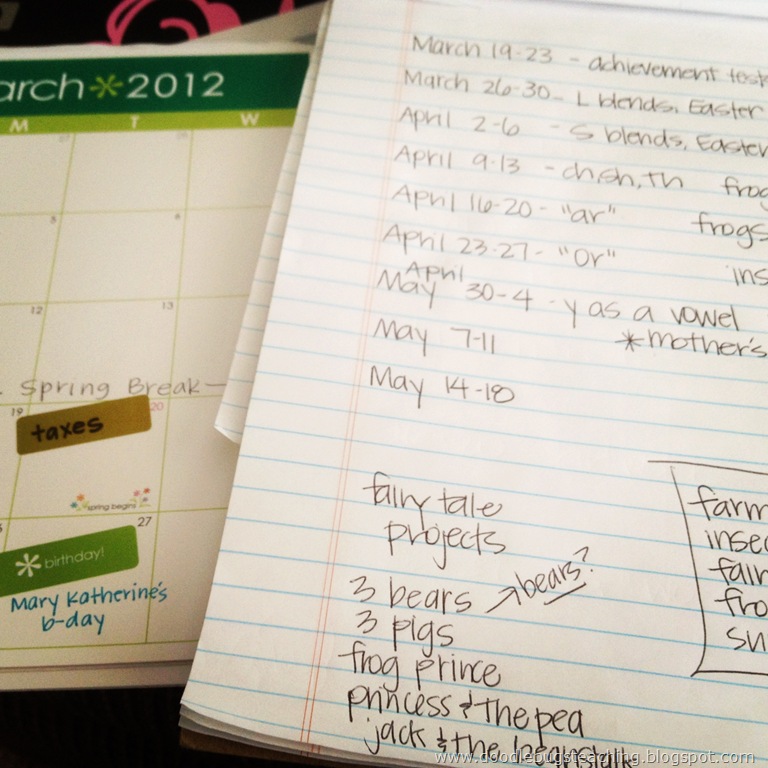 arch 2012
M T W
5 6
12 13
Spring Break
19 20
taxes
spring begins
27
birthday!
Mary Katherine's
b-day
March 19-23 - achievement test
March 26-30 - L blends, Easter
April 2-6 - S blends, Easter
April 9-13 - ch, sh, th frog
April 16-20 - "ar" frogs
April 23-27 - "or" ins
April
May 30-4 - y as a vowel
May 7-11 *mother's
May 14-18
fairy tale
projects
3 bears bears?
3 pigs
frog prince
princess & the pea
jack & the beanstalk
farm
insec
fair
fro
su
www.doodlebugsteaching.blogspot.com